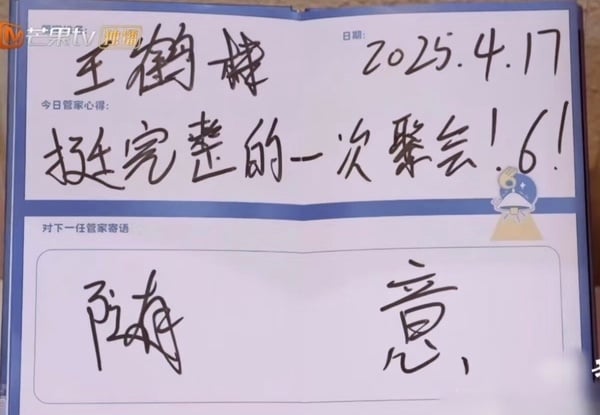 芒果tv 独播
王鹤棣 日期: 2025.4.17
今日管家心得:
挺完整的一次聚会!6!
对下一任管家寄语
随意,